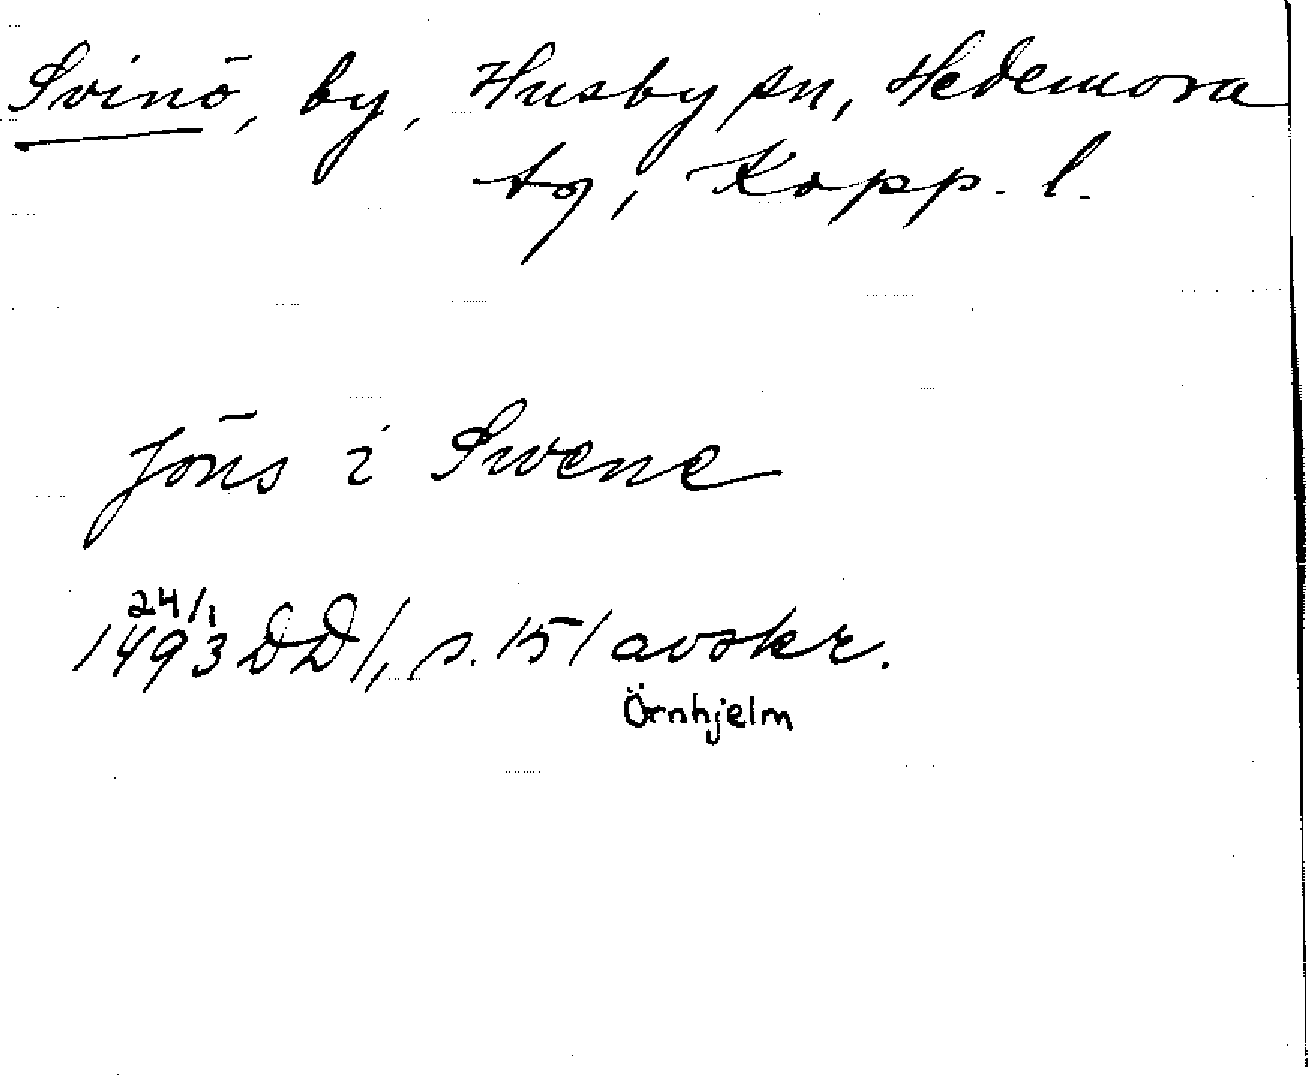 Svinö, by, Husby sn, Hedemora
tg, Kopp. l.
Jöns i Swene
24/1
1493 DD 1, s. 151 avskr.
Örnhjelm